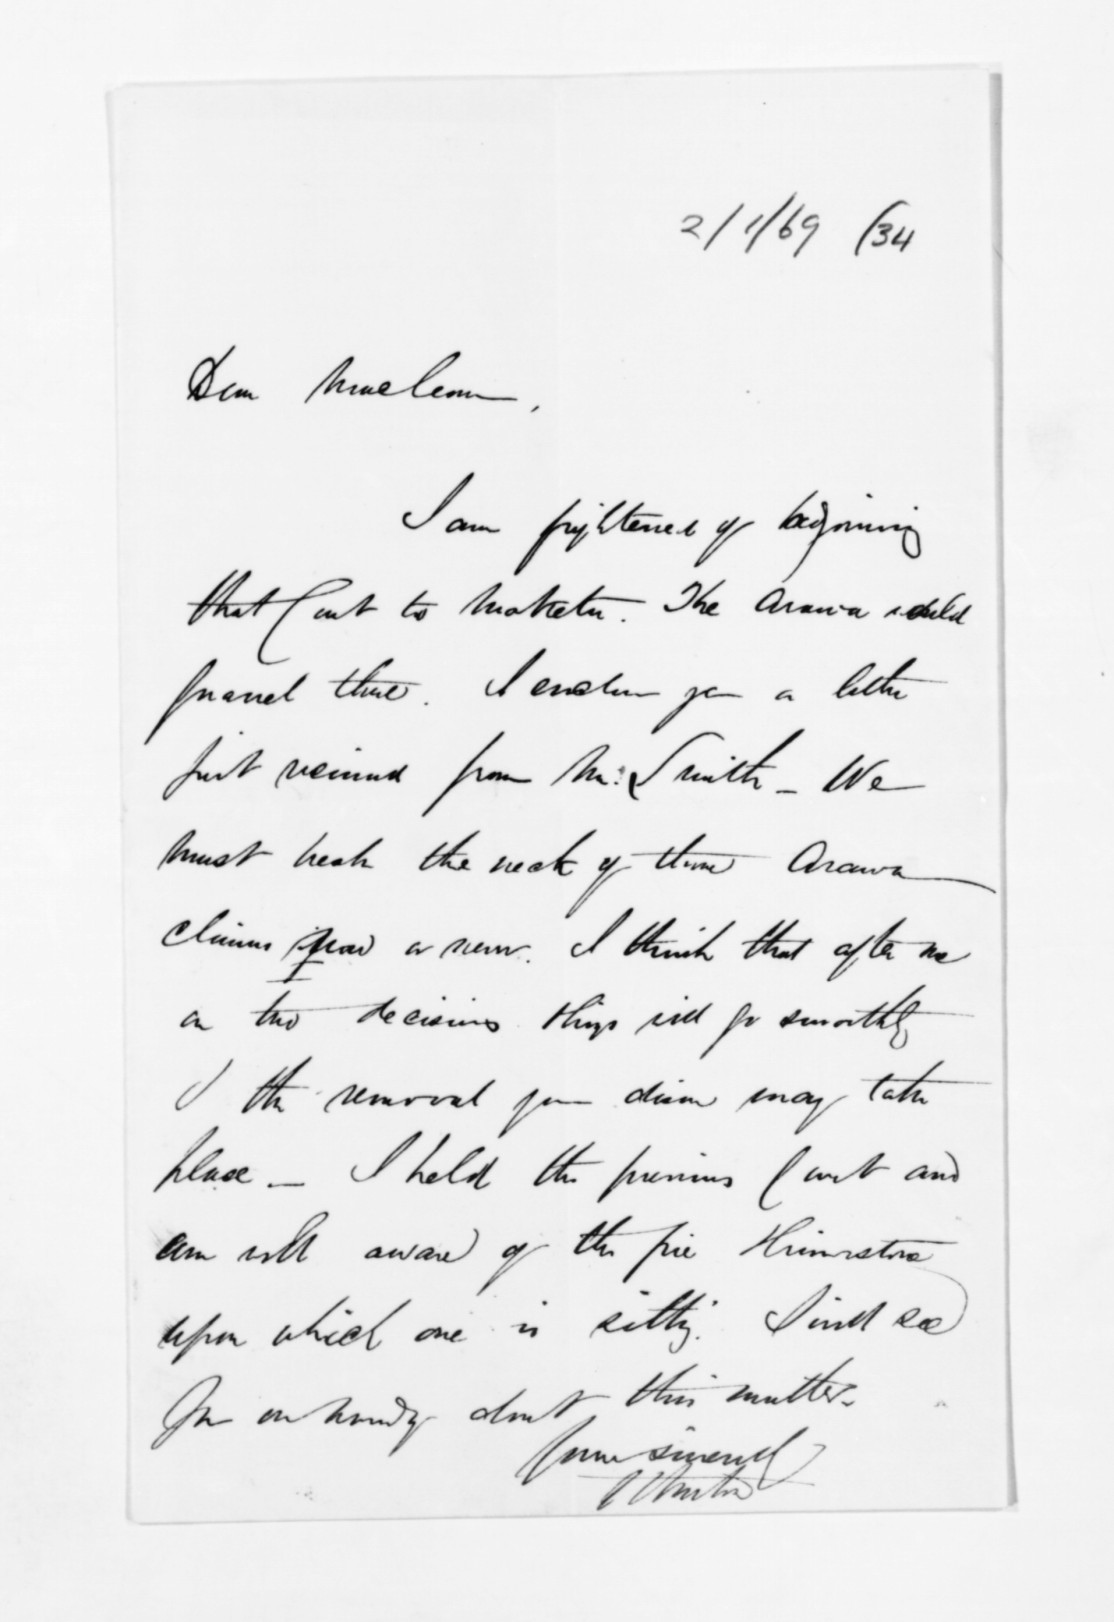 2/1/69 (34
Dear Maclean,
I am frightened of adjourning
that Court to Maketu. The Arawa would
quarrel there. I enclose you a letter
just received from Mr. Smith _ We
must break the neck of these Arawa
claims now or never. I think that after one
or two decisions things will go smoothly
& the removal you desire may take
place. _ I held the previous Court and
am well aware of the fire & brimstone
upon which one is sitting. I will see
you on Monday about this matter.
Yours sincerely